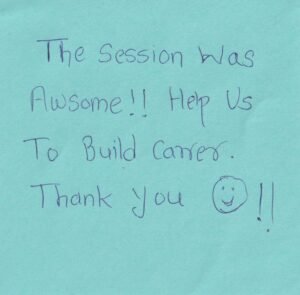 The Session Was
Awsome!! Help Us
To Build Carrer.
Thank you ☺!!